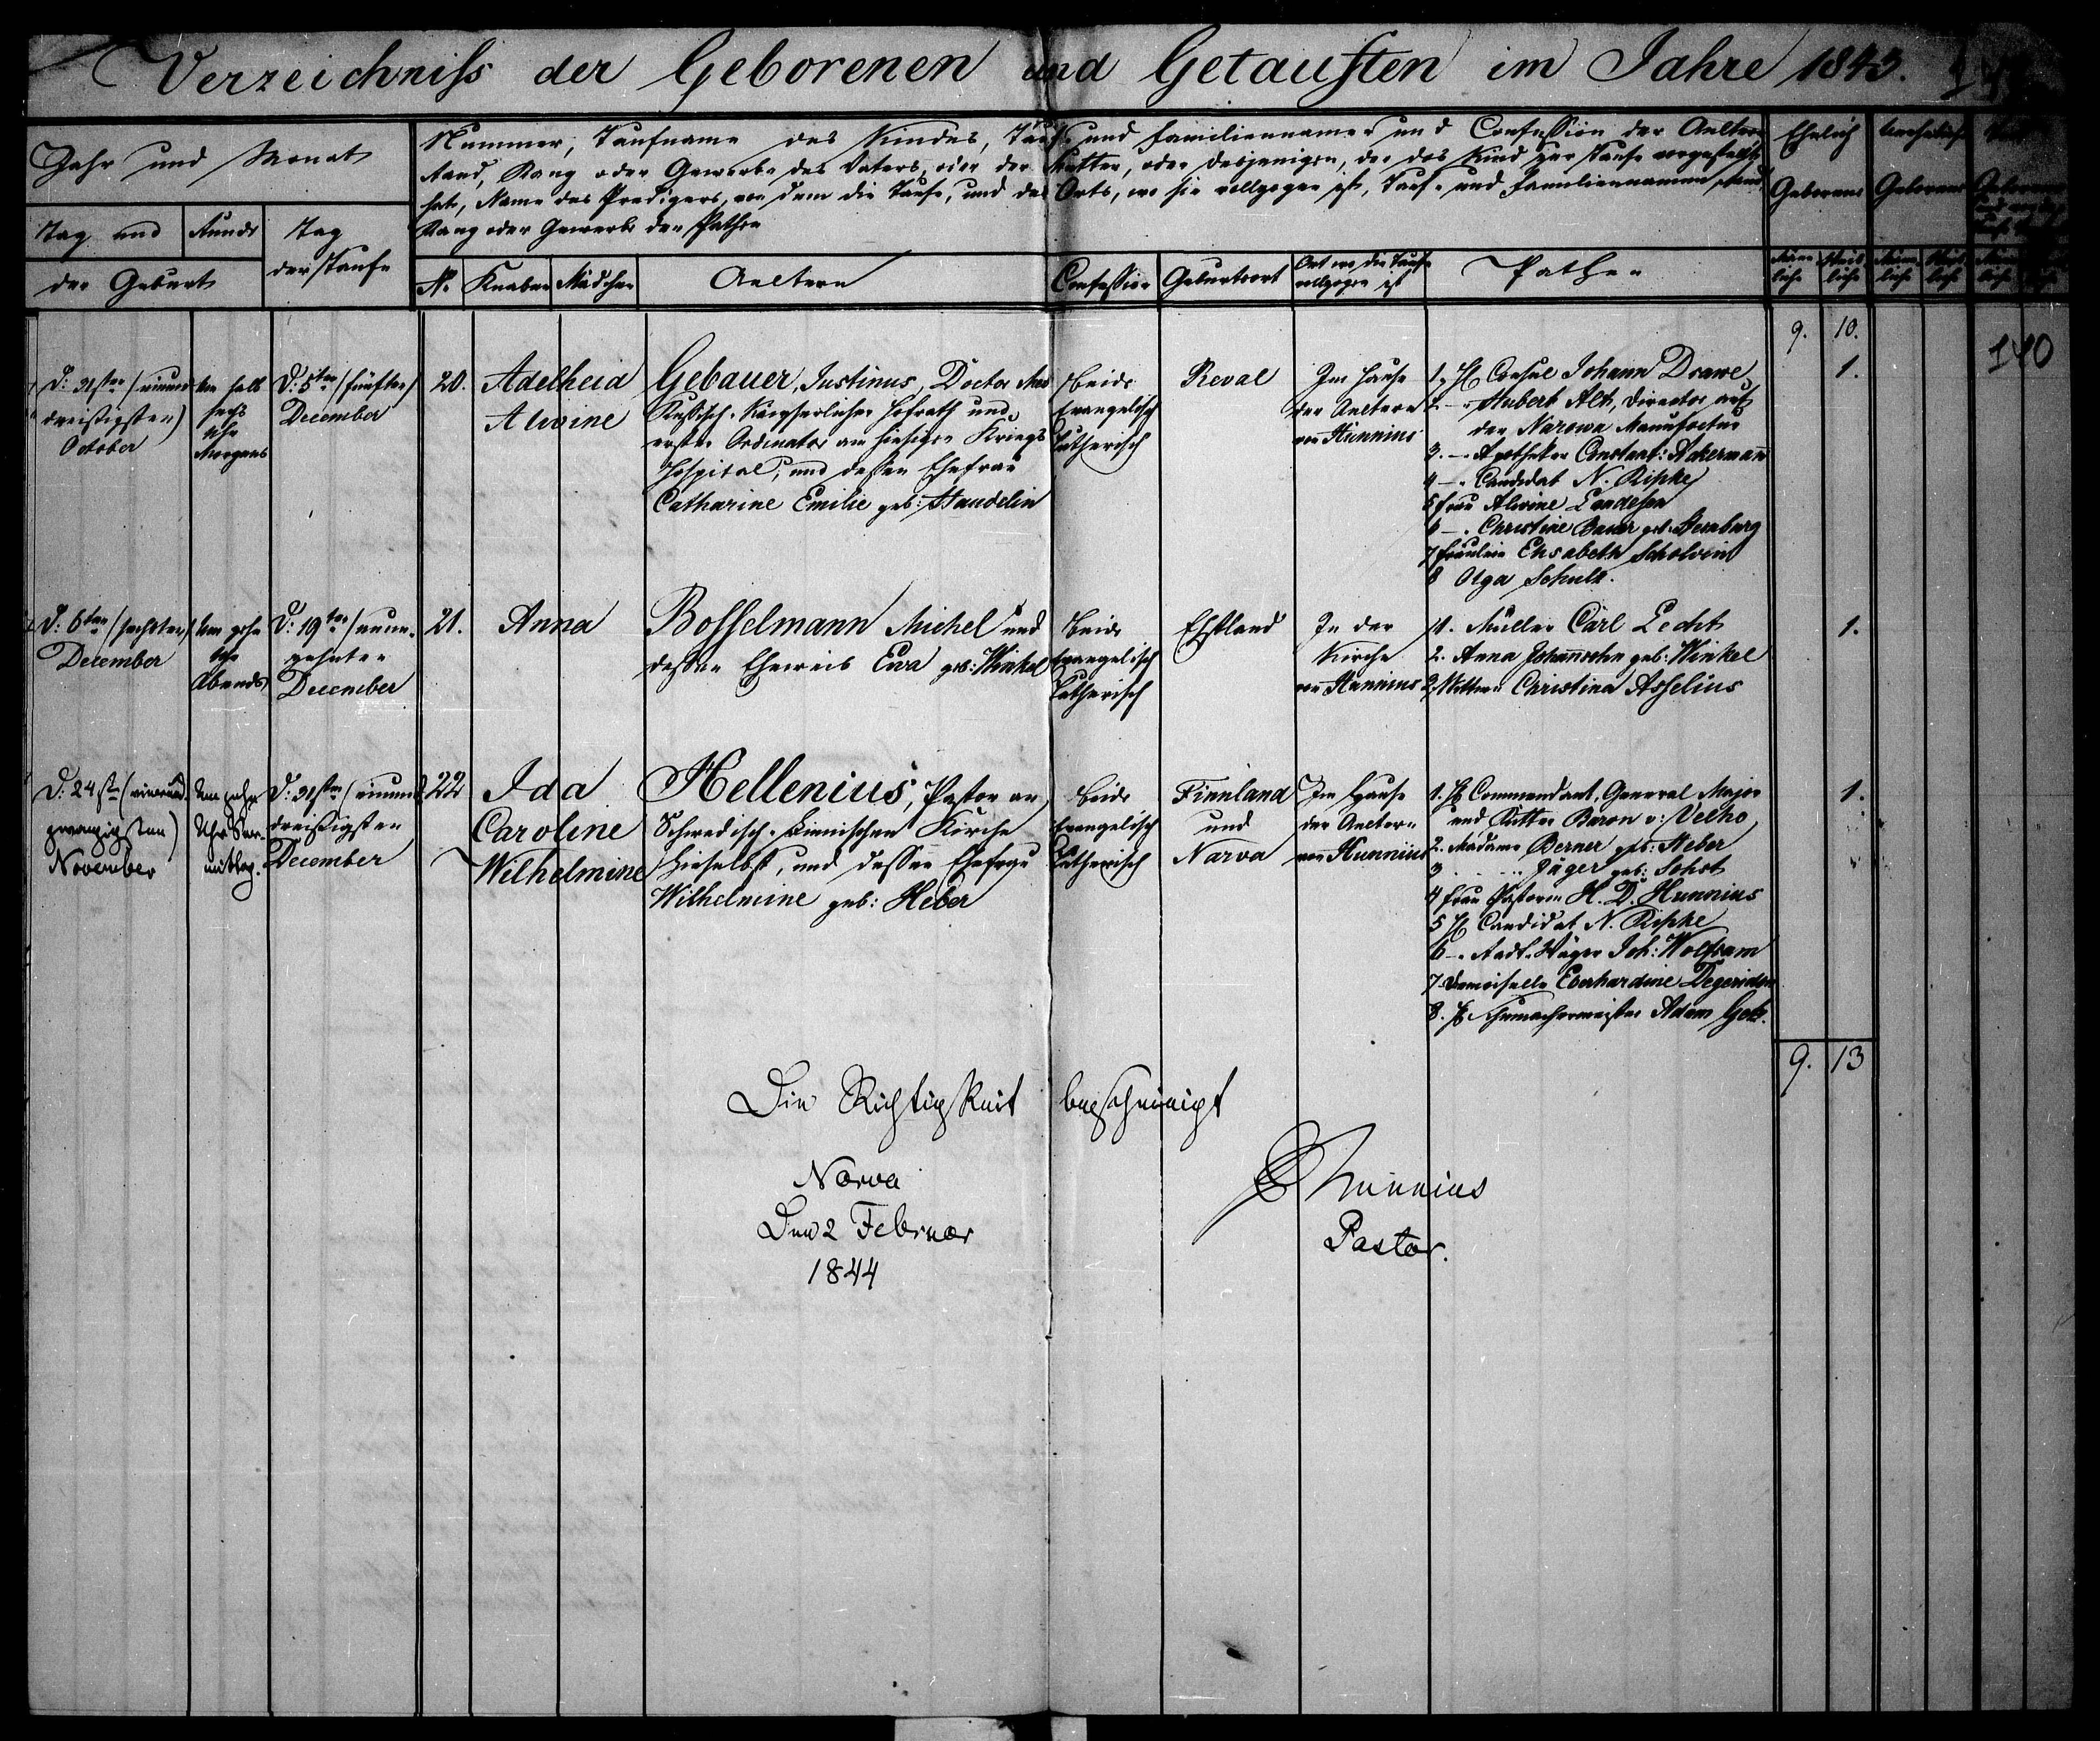 Verzeichniss der Geborenen und Getauften im Jahre 1843.
140
Jahr und Monat
Tag und
Stunde
der Geburt
Tag
der Taufe
Nummer, Taufname des Kindes, Tauf- und Familiennamen und Confession der Aeltern
Stand, Rang oder Gewerbe des Vaters, oder der Mutter, oder desjenigen, der das Kind zur Taufe vorgestellt
hat, Name des Predigers, von dem die Taufe, und des Orts, wo sie vollzogen ist, Tauf- und Familiennamen, Stand
Rang oder Gewerbe der Pathen
Ehelich
Geborene
Unehelich
Geborene
No
Knaben
Mädchen
Aeltern
Confession
Geburtsort
Ort wo die Taufe
vollzogen ist
Pathen
Männ-
liche
Weib-
liche
Männ-
liche
Weib-
liche
9. 10.
D: 31sten (einund
dreißigsten)
October
Um halb
sechs
Uhr
Morgens
D: 5ten (fünften)
December
20.
Adelheid
Alwine
Gebauer, Justinus, Doctor Med
Russisch-Kayserlicher Hofrath und
erster Ordinator am hiesigen Kriegs
Hospital, und dessen Ehefrau
Catharine Emilie geb: Standelin
Beide
Evangelisch
Lutherisch
Reval
Im Hause
der Aeltern
von Hunnius
1. H Consul Johann Drawe
2 — " Hubert Alt, Director auf
der Narowa Manufactur
3. — " Apotheker Constant: Ackermann
4 — " Candidat N. Ripke
5 Frau Alwine Landesen
6 — " Christine Bauer geb: Sternburg
7 Fräulein Elisabeth Scholvin
8 Olga Schulz.
1.
D: 6ten (sechsten)
December
Um zehn
Uhr
Abends
D: 19ten (neun-
zehnten
December
21.
Anna
Bosselmann Michel und
dessen Eheweib Ewa geb: Winkel
Beide
Evangelisch
Lutherisch
Ehstland
In der
Kirche
von Hunnius
1. Müller Carl Lecht
2. Anna Johannsohn geb: Winkel
3. Wittwe Christina Asselius
1.
D: 24sten (vierund-
zwanzigsten)
November
Um zehn
Uhr Vor-
mittag.
D: 31sten (einund
dreißigsten
December
22
Ida
Caroline
Wilhelmine
Hellenius, Pastor an
Schwedisch-Finnischen Kirche
hieselbst, und dessen Ehefrau
Wilhelmine geb: Heber
Beide
Evangelisch
Lutherisch
Finnland
und
Narva
Im Hause
der Aeltern
von Hunnius
1. H Commendant, General Major
und Ritter Baron v: Velho
2. Madame Berner geb: Heber
3 " " Jäger geb: Sehst
4 Frau Pastorin H. D. Hunnius
5 H Candidat N. Ripke
6 — " Stadt-Wäger Joh: Wolfram
7 Demoiselle Eberhardine Degeridon
8. H Schumachermeister Adam Götz.
1.
9. 13
Die Richtigkeit bescheinigt
Narva
Den 2 Februar
1844
Hunnius
Pastor.